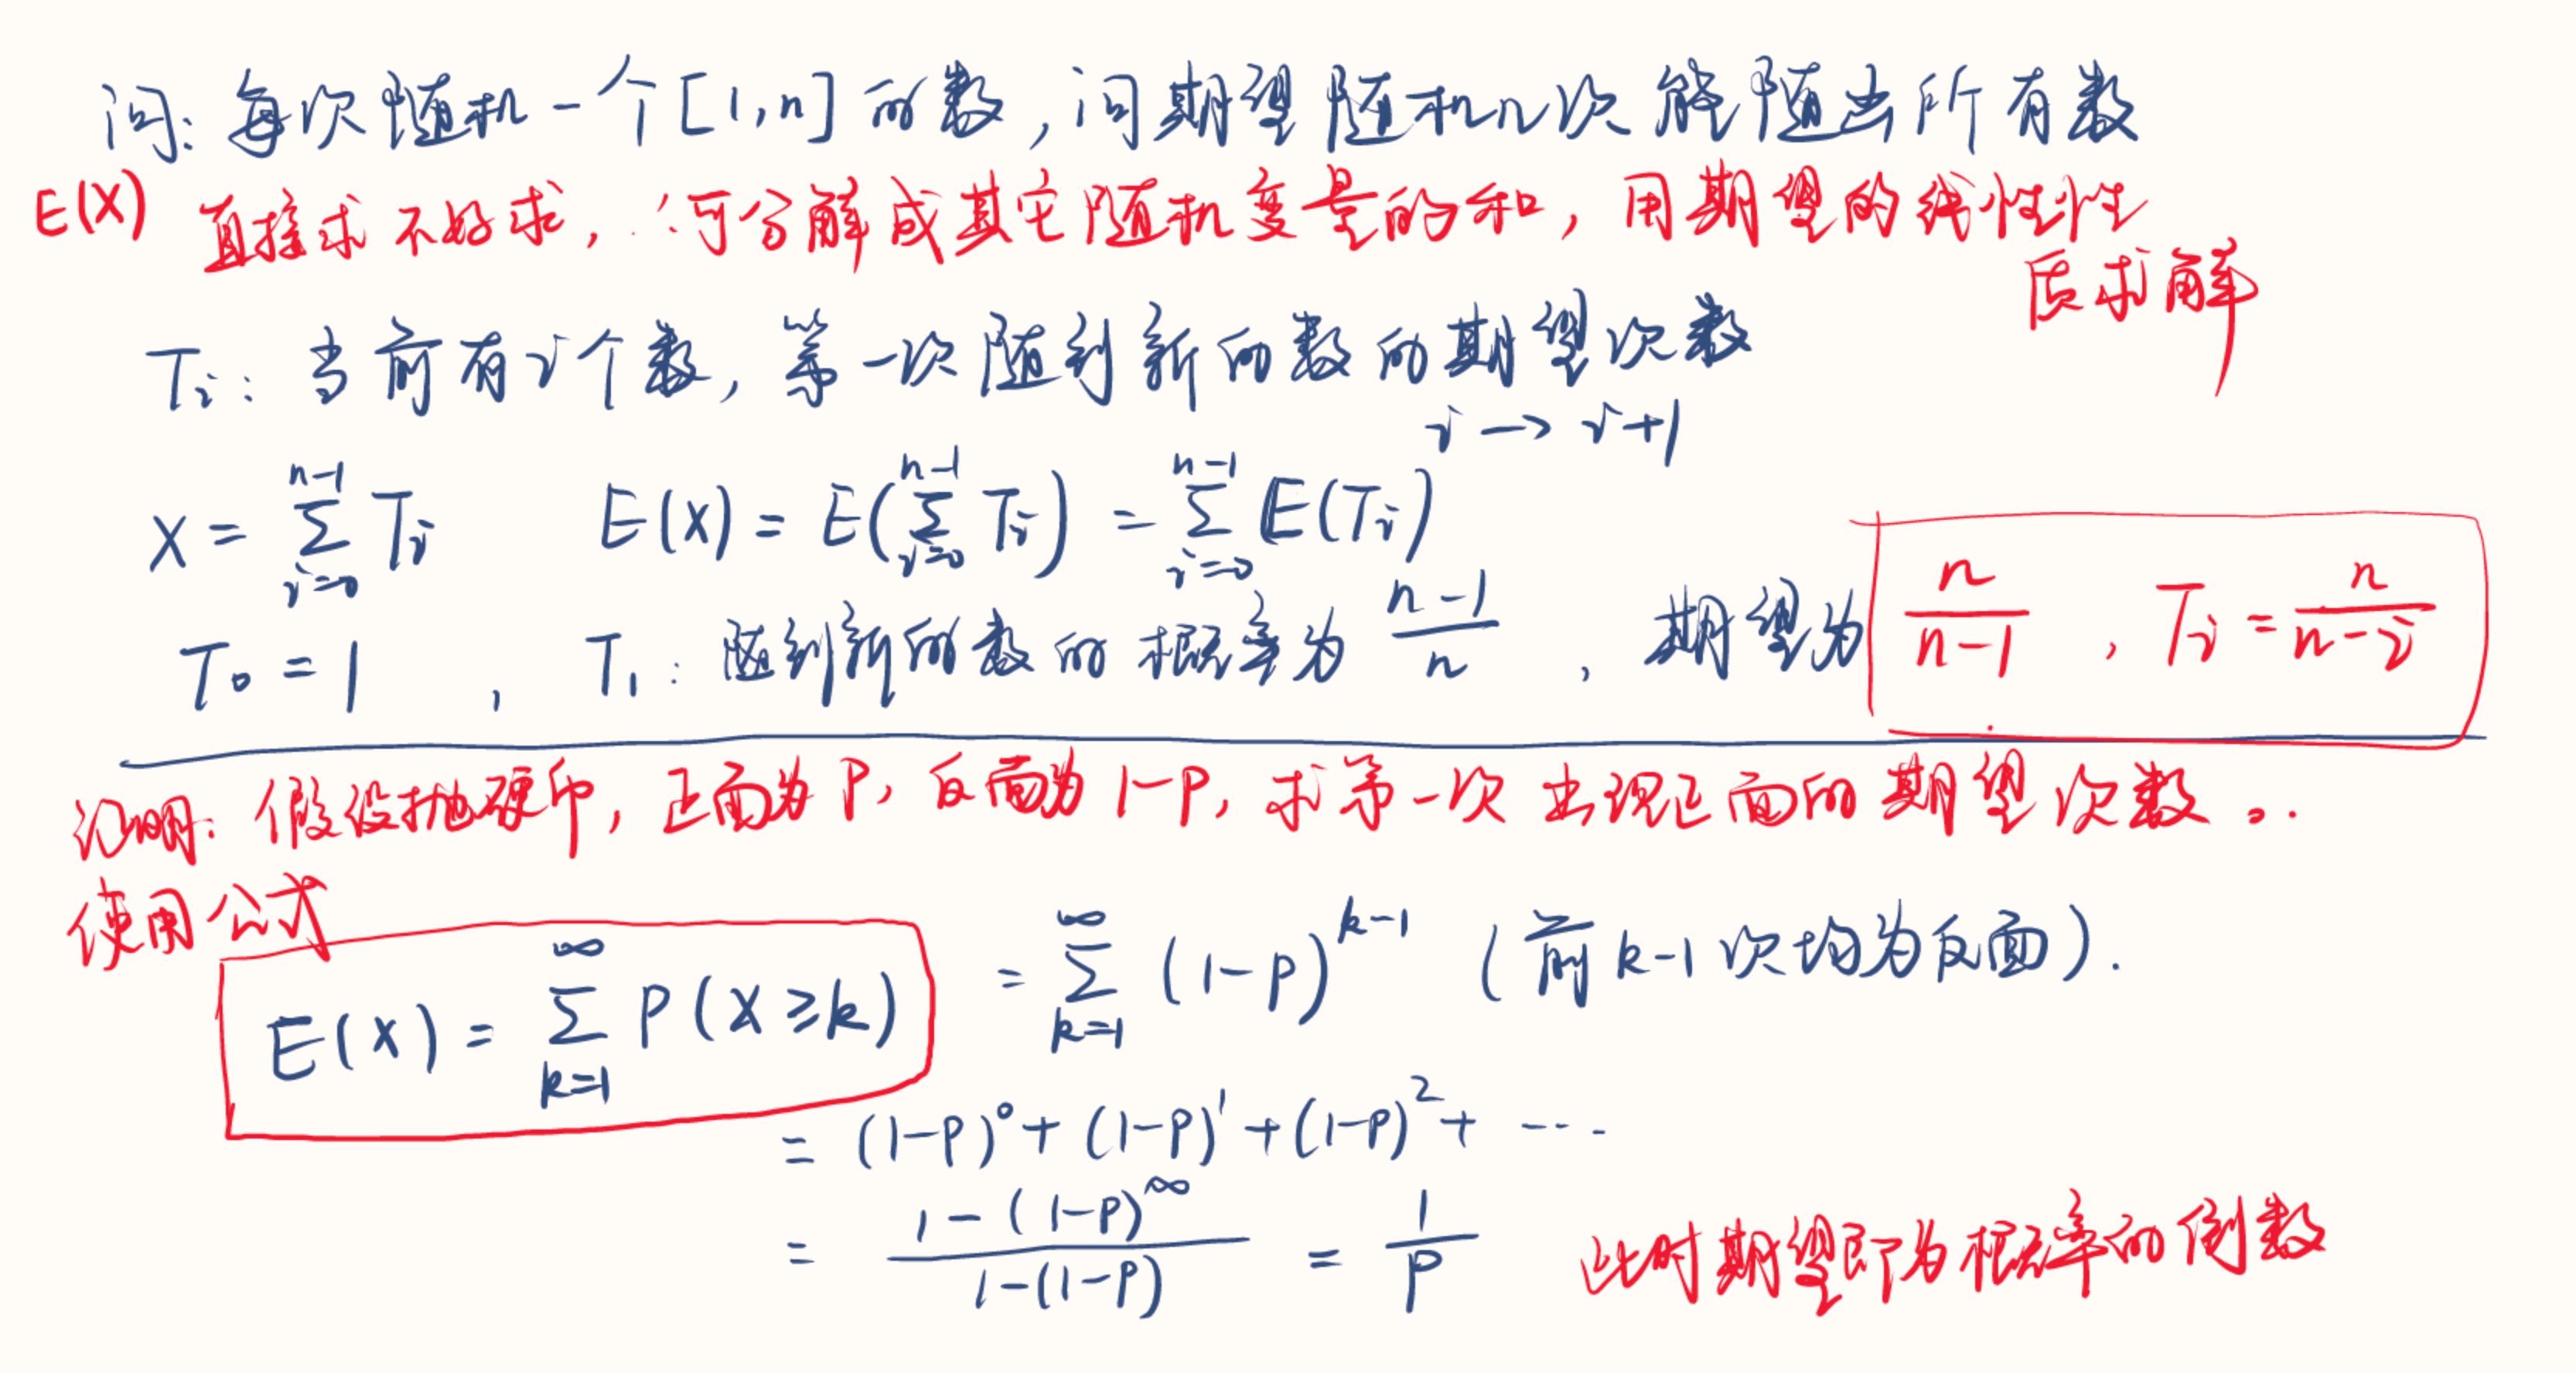 问: 每次随机一个[1,n]的数,问期望随机n次能随出所有数
E(X) 直接求不好求, ∴可分解成其它随机变量的和, 用期望的线性性
质求解
Ti: 当前有i个数, 第一次随到新的数的期望次数
i → i+1
X = ∑_{i=0}^{n-1} Ti E(X) = E(∑_{i=0}^{n-1} Ti) = ∑_{i=0}^{n-1} E(Ti)
T0 = 1 , T1: 随到新的数的概率为 (n-1)/n , 期望为 n/(n-1) , Ti = n/(n-i)
证明: 假设抛硬币, 正面为P, 反面为1-P, 求第一次出现正面的期望次数。.
使用公式
E(X) = ∑_{k=1}^{∞} P(X≥k) = ∑_{k=1}^{∞} (1-P)^{k-1} (前k-1次均为反面).
= (1-P)^0 + (1-P)^1 + (1-P)^2 + ...
= (1-(1-P)^∞)/(1-(1-P)) = 1/P 此时期望即为概率的倒数